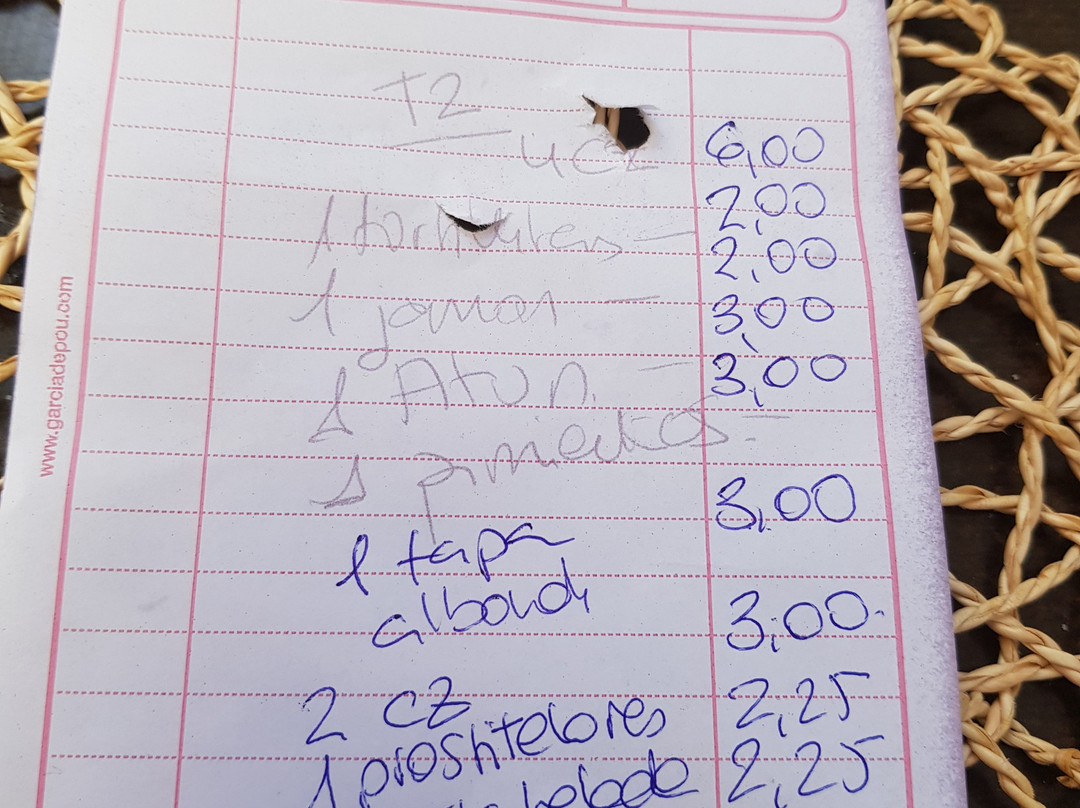 www.garciadepou.com
T2
4 cz 6,00
1 — 2,00
1 jamon — 2,00
1 Atun — 3,00
1 pimientos — 3,00
1 tapa 3,00
albondi 3,00
2 cz 2,25
1 2,25